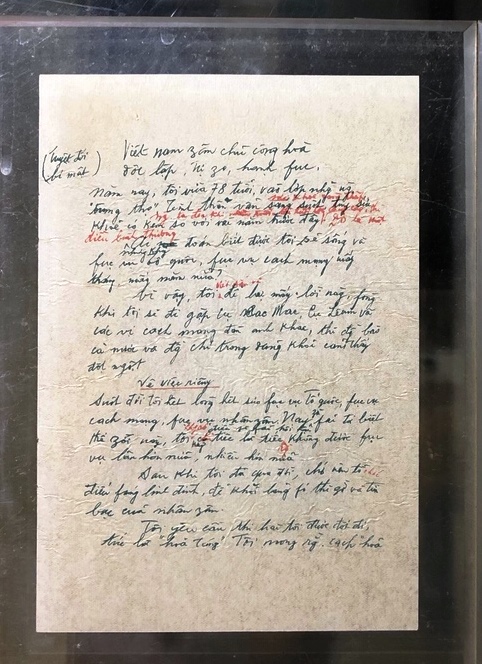 (Tuyệt đối
bí mật)
Việt nam zân chủ cộng hoà
độc lập, tự zo, hạnh fúc.
Năm nay, tôi vừa 78 tuổi, vào lớp những ng
"trung thọ". Tinh thần vẫn sáng suốt, tuy
sức khoẻ
khoẻ có kém so với vài năm trước đây. Đó là một
điều bình thường
Nhưng ai mà đoán biết được tôi sẽ sống và
fục vụ tổ quốc, fục vụ cách mạng mấy
tháng, mấy năm nữa?
Vì vậy, tôi để lại mấy lời này, fòng
khi tôi sẽ đi gặp cụ Các Mác, cụ Lênin và
các vị cách mạng đàn anh khác, thì đ bào
cả nước và đ chí trong đảng khỏi cảm thấy
đột ngột
Về việc riêng
Suốt đời tôi hết lòng hết sức fục vụ Tổ quốc, fục vụ
cách mạng, fục vụ nhân zân. Nay fải từ biệt
thế zới này, tôi
tiếc là tiếc không được fục
vụ lâu hơn nữa, nhiều hơn nữa
Sau khi tôi đã qua đời, chớ nên tổ chức
điếu fúng linh đình, để khỏi lãng fí thì giờ và tiền
bạc của nhân zân.
Tôi yêu cầu thi hài tôi được đốt đi,
tức là "hoả táng". Tôi mong rằng cách "hoả